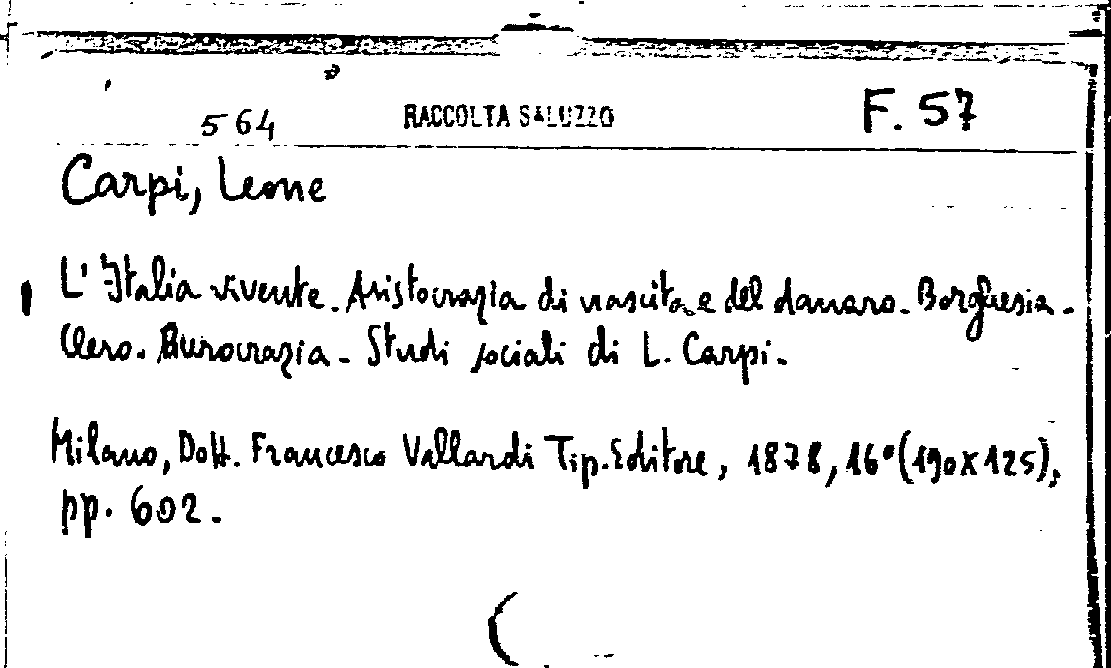 564 RACCOLTA SALUZZO F. 57
Carpi, Leone
L'Italia vivente. Aristocrazia di nascita e del danaro. Borghesia.
Clero. Burocrazia. Studi sociali di L. Carpi.
Milano, Dott. Francesco Vallardi Tip. Editore, 1878, 16° (190x125),
pp. 602.